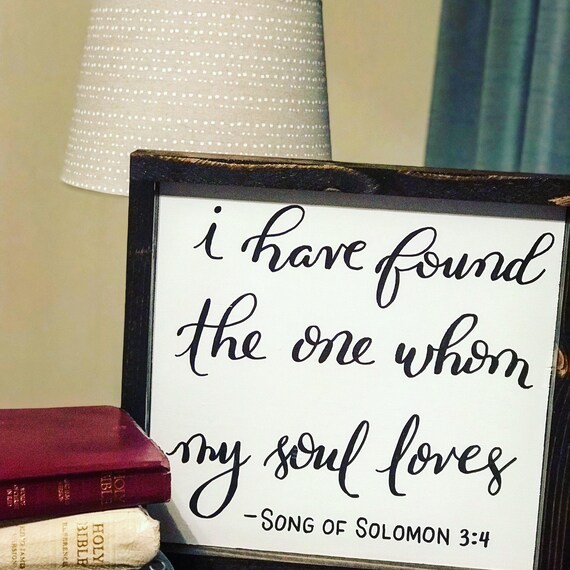 i have found
the one whom
my soul loves
-SONG OF SOLOMON 3:4
HOLY
BIBLE
HOLY
BIBLE
REFERENCE